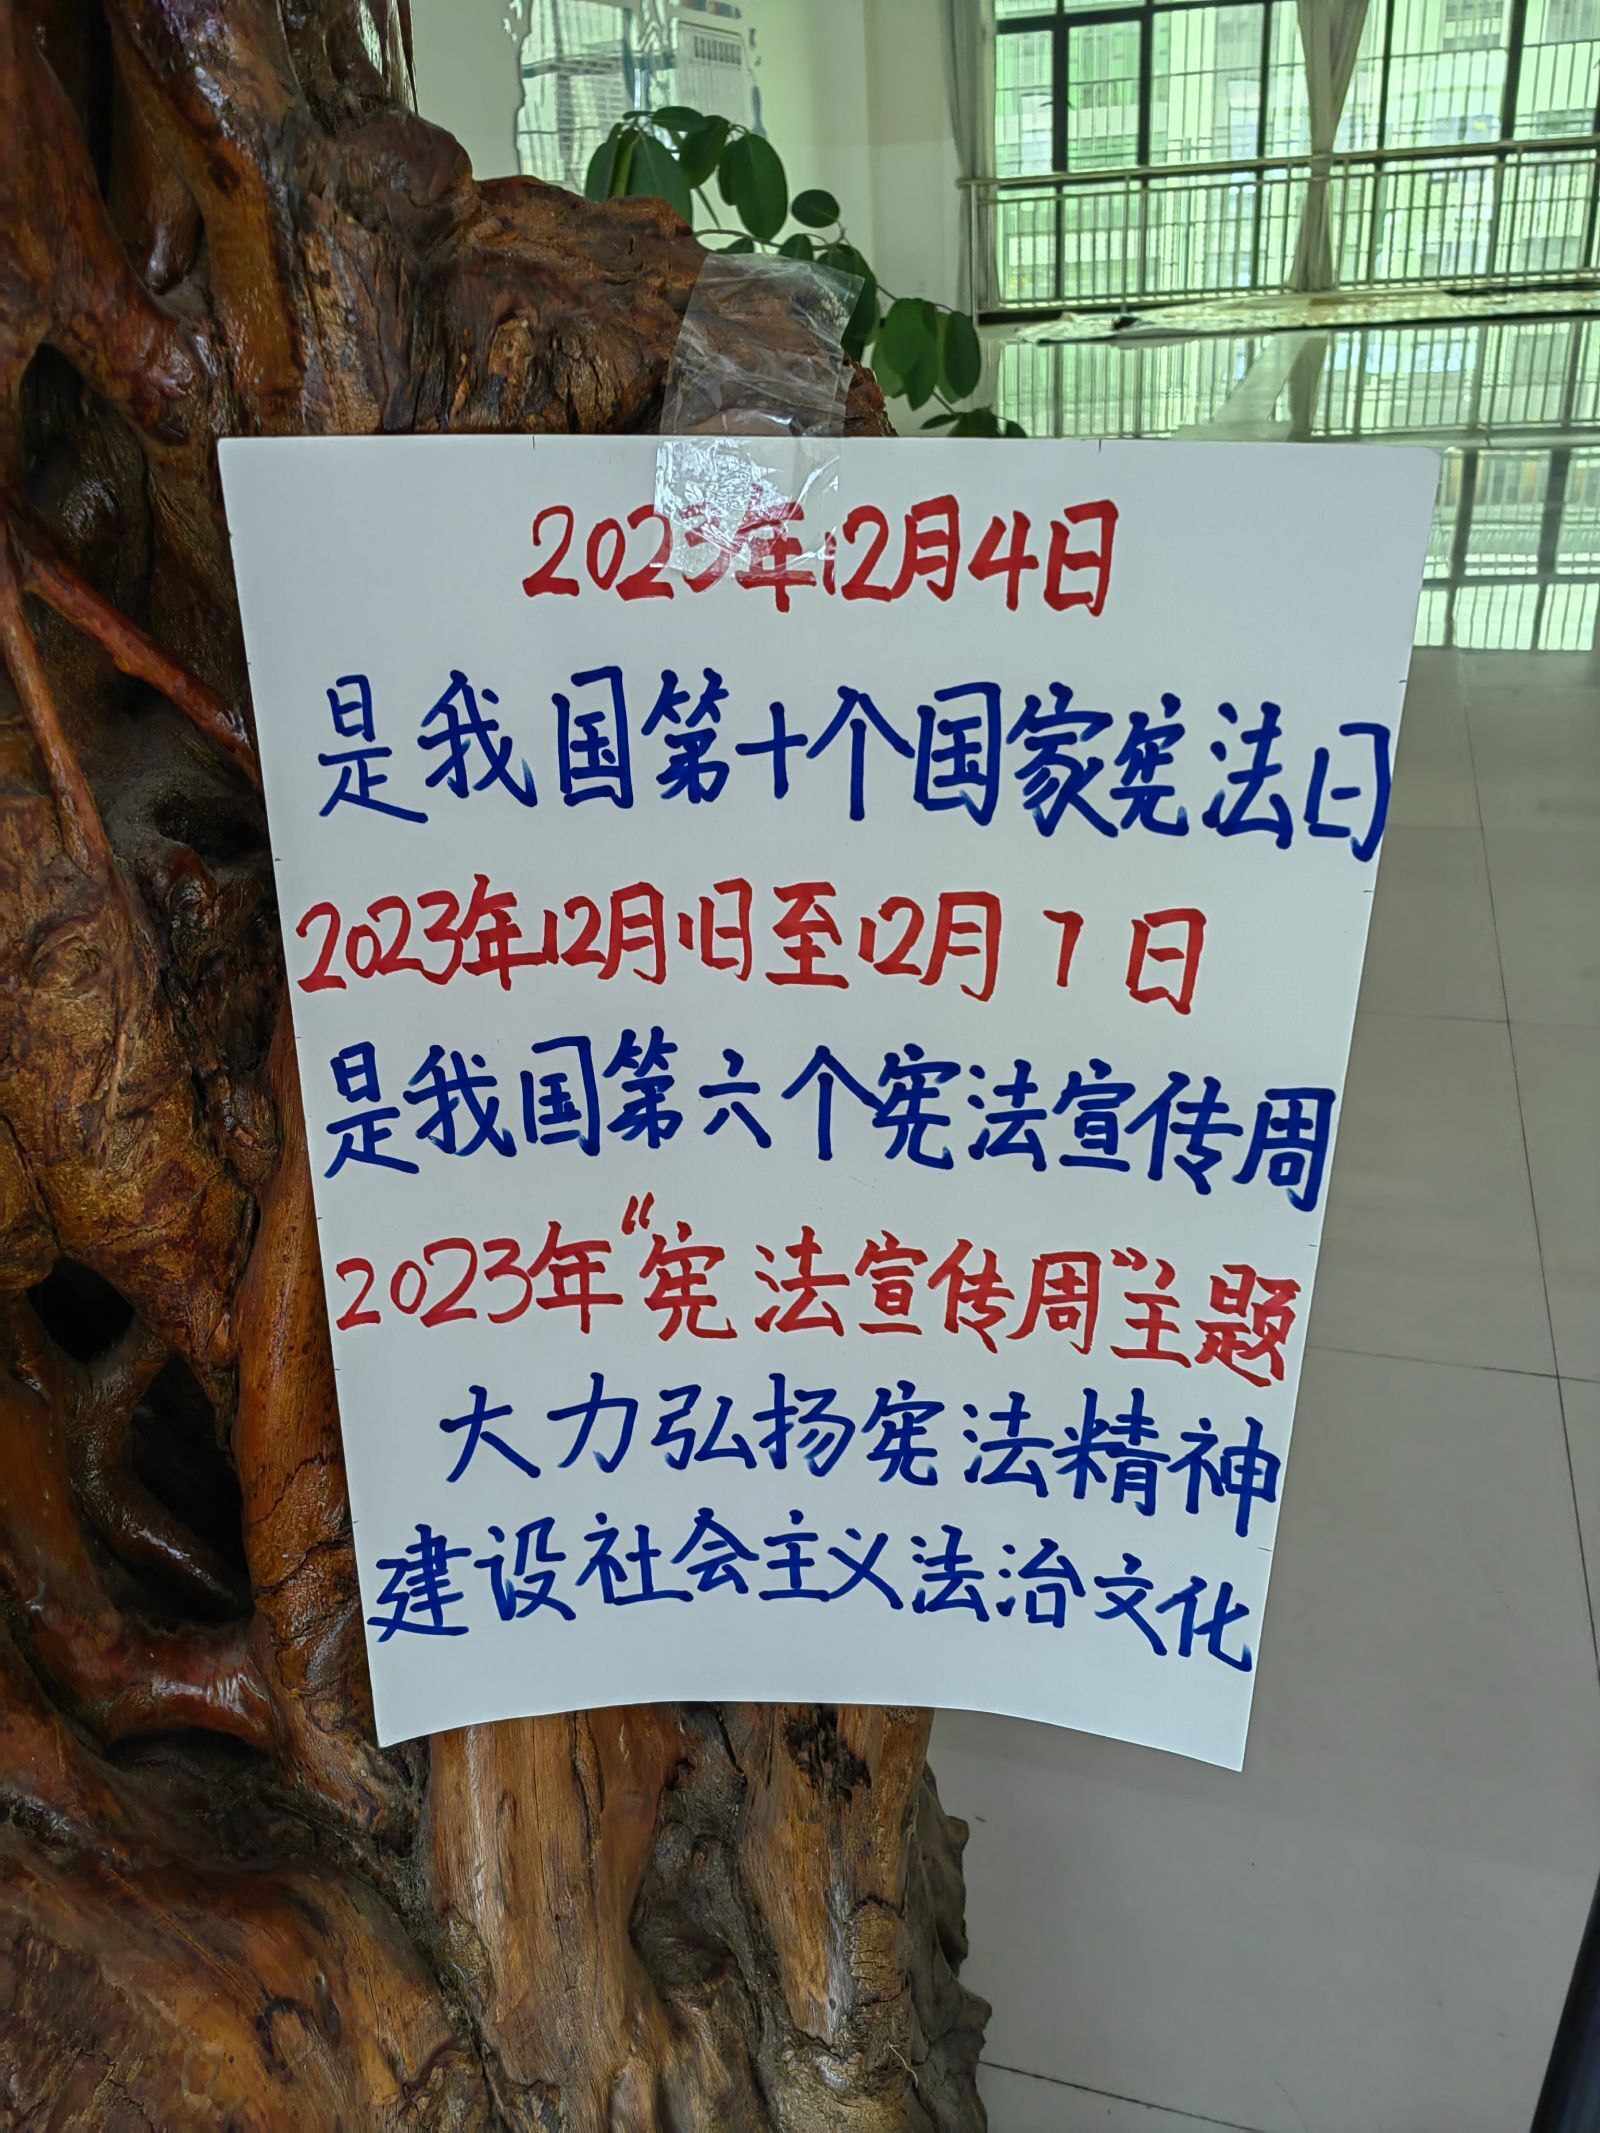 2023年12月4日
是我国第十个国家宪法日
2023年12月1日至12月7日
是我国第六个宪法宣传周
2023年“宪法宣传周”主题
大力弘扬宪法精神
建设社会主义法治文化